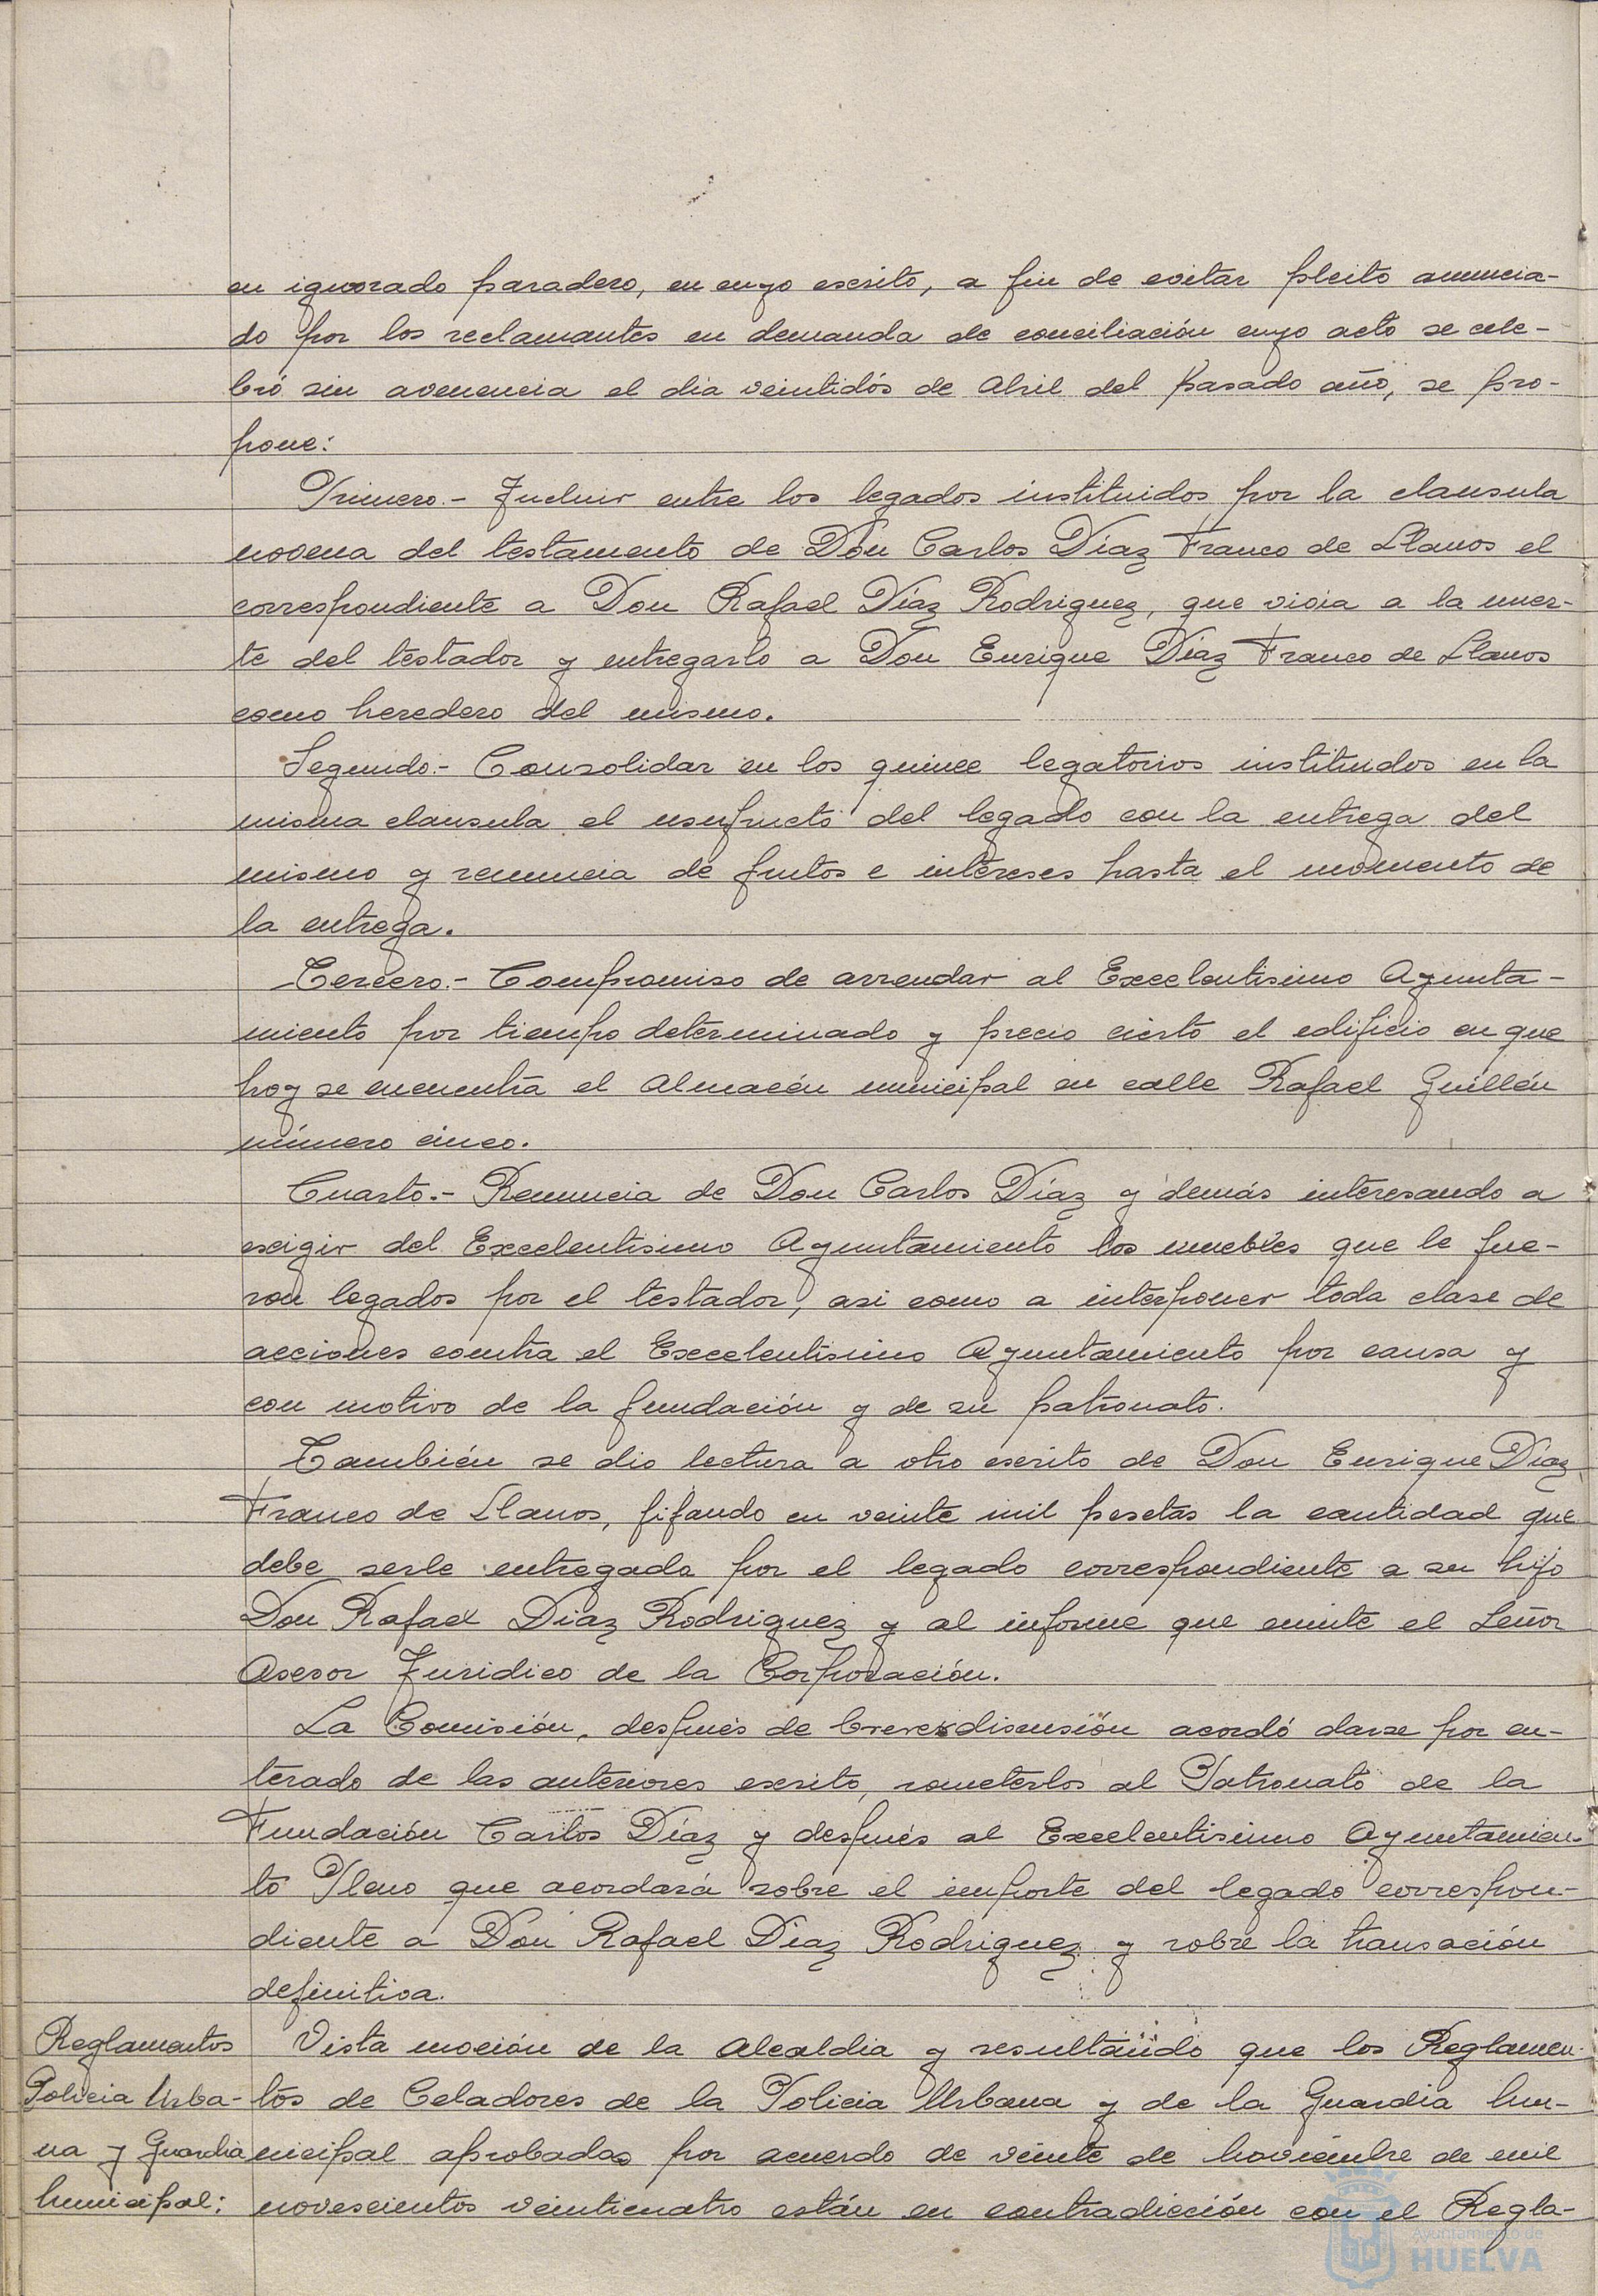 en ignorado paradero, en cuyo escrito, a fin de evitar pleito anuncia-
do por los reclamantes en demanda de conciliación cuyo acto se cele-
bró sin avenencia el día veintidós de Abril del pasado año, se pro-
pone:
Primero.- Incluir entre los legados instituidos por la clausula
novena del testamento de Don Carlos Díaz Franco de Llanos el
correspondiente a Don Rafael Díaz Rodriguez, que vivia a la muer-
te del testador y entregarlo a Don Enrique Díaz Franco de Llanos
como heredero del mismo.
Segundo.- Consolidar en los quince legatorios instituidos en la
misma clausula el usufructo del legado con la entrega del
mismo y renuncia de frutos e intereses hasta el momento de
la entrega.
Tercero.- Compromiso de arrendar al Excelentisimo Ayunta-
miento por tiempo determinado y precio cierto el edificio en que
hoy se encuentra el Almacén municipal en calle Rafael Guillén
número cinco.
Cuarto.- Renuncia de Don Carlos Díaz y demás interesando a
exigir del Excelentisimo Ayuntamiento los muebles que le fue-
ron legados por el testador, asi como a interponer toda clase de
acciones contra el Excelentisimo Ayuntamiento por causa y
con motivo de la fundación y de su patronato.
También se dio lectura a otro escrito de Don Enrique Díaz
Franco de Llanos, fijando en veinte mil pesetas la cantidad que
debe serle entregada por el legado correspondiente a su hijo
Don Rafael Diaz Rodriguez y al informe que emite el Señor
Asesor Juridico de la Corporación.
La Comisión, después de breve discusión acordó darse por en-
terado de las anteriores escrito, someterlos al Patronato de la
Fundación Carlos Díaz y después al Excelentisimo Ayuntamien-
to Pleno que acordará sobre el importe del legado correspon-
diente a Don Rafael Diaz Rodriguez y sobre la transación
definitiva.
Reglamentos
Policia Urba-
na y Guardia
Municipal:
Vista moción de la Alcaldia y resultando que los Reglamen-
tos de Celadores de la Policia Urbana y de la Guardia Mu-
nicipal aprobados por acuerdo de veinte de Noviembre de mil
novescientos veinticuatro están en contradicción con el Regla-
Ayuntamiento de
HUELVA